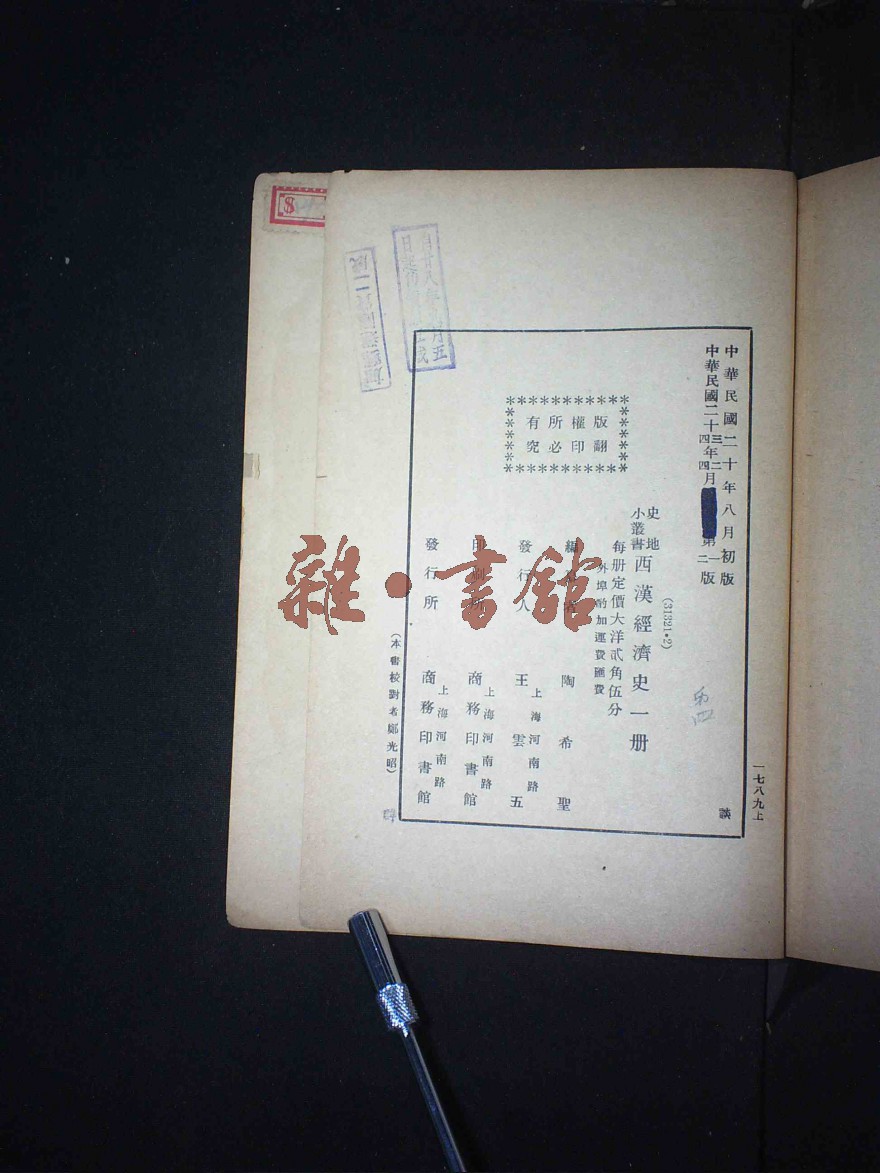 中華民國二十年八月初版
中華民國二十三年二月第一版
四四二
(31321•2)
史地
小叢書
西漢經濟史一册
每册定價大洋貳角伍分
外埠酌加運費匯費
版權所有
翻印必究
陶希聖
發行人
王雲五
上海河南路
印刷所
商務印書館
上海河南路
發行所
商務印書館
上海河南路
(本書校對者鄭光昭)
一七八九上
雜·書館